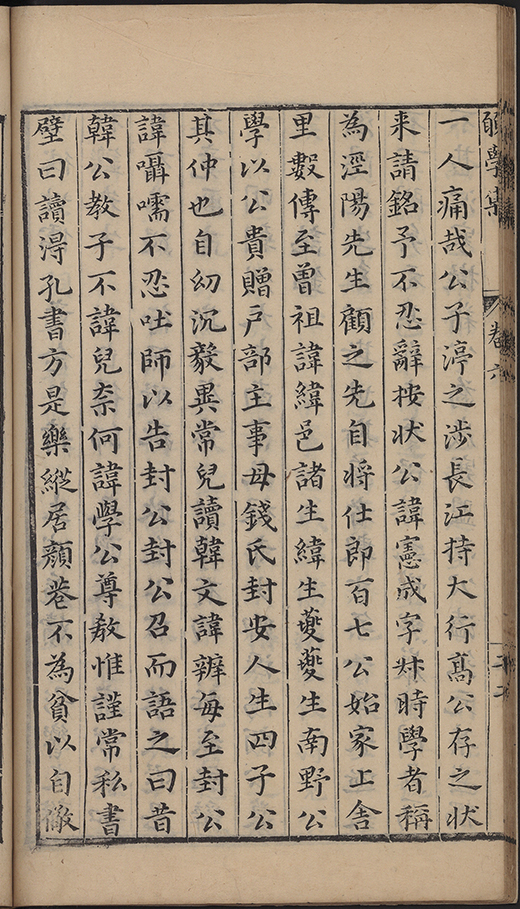 學
卷六
一人痛哉公子渟之涉長江持大行髙公存之狀
来請銘予不忍辭按狀公諱憲成字𠦑時學者稱
為涇陽先生顧之先自将仕郎百七公始家上舍
里數傳至曾祖諱緯邑諸生緯生夔夔生南野公
學以公貴贈戸部主事母錢氏封安人生四子公
其仲也自幼沉毅異常兒讀韓文諱辨每至封公
諱囁嚅不忍吐師以告封公封公召而語之曰昔
韓公教子不諱兒柰何諱學公尊教惟謹常私書
壁曰讀淂孔書方是樂縱居顏巷不為貧以自儆